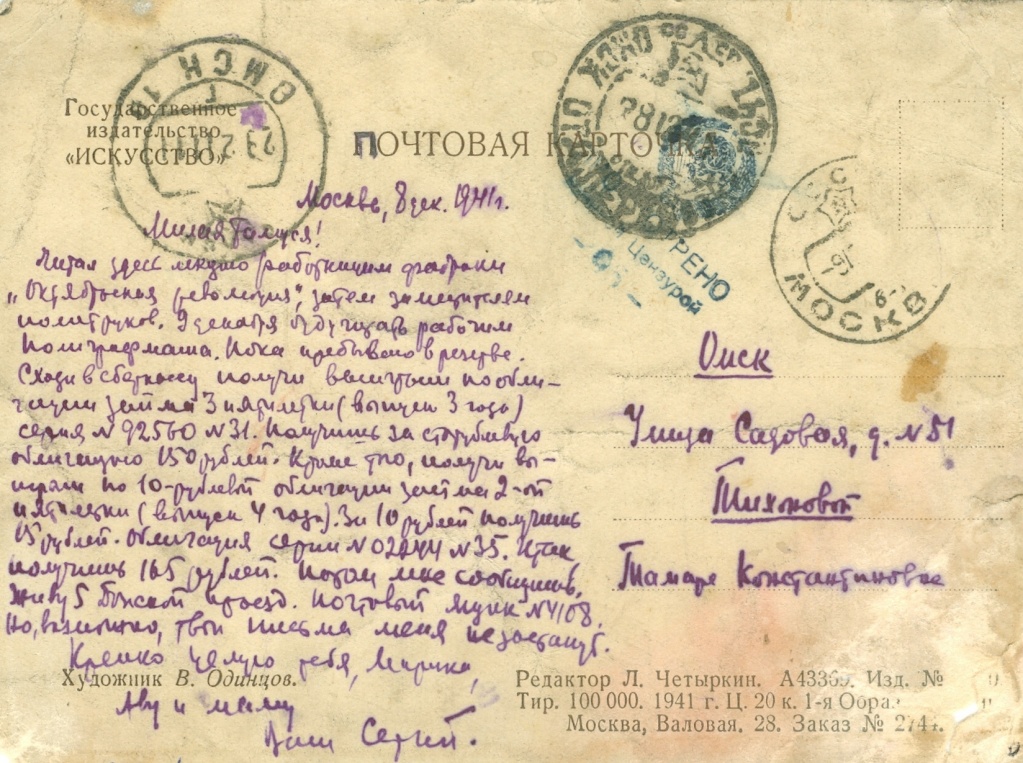 Государственное
издательство
«ИСКУССТВО»
ПОЧТОВАЯ КАРТОЧКА
ОМСК
СССР
МОСКВ
РЕНО
Цензурой
Москва, 8 дек. 1941 г.
Милая Гамуся!
Читал здесь лекцию работницам фабрики
„Октябрьская революция“, затем заместителем
политруков. 9 декабря буду читать рабочим
Полиграфмаша. Пока пребываю в резерве.
Сходи в сберкассу получи выигрыш по обли-
гации займа 3 пятилетки (выпуск 3 года)
серия N 92560 N 31. Получишь за сторублевую
облигацию 150 рублей. Кроме того, получи вы-
играли по 10-рублевой облигации займа 2-ой
пятилетки (выпуск 4 года). За 10 рублей получишь
15 рублей. Облигация серии N 02244 N 35. Итак
получишь 165 рублей. Потом мне сообщишь.
Живу 5 Донской проезд. Почтовый ящик N 4108.
Но, возможно, твои письма меня не застанут.
Крепко целую тебя, Мирика,
Аву и маму
Ваш Сергей.
Омск
Улица Садовая, д. N 51
Тихоновой
Тамаре Константиновне
Художник В. Одинцов.
Редактор Л. Четыркин. А43369. Изд. №
Тир. 100 000. 1941 г. Ц. 20 к. 1-я Обра
Москва, Валовая. 28. Заказ № 2744.